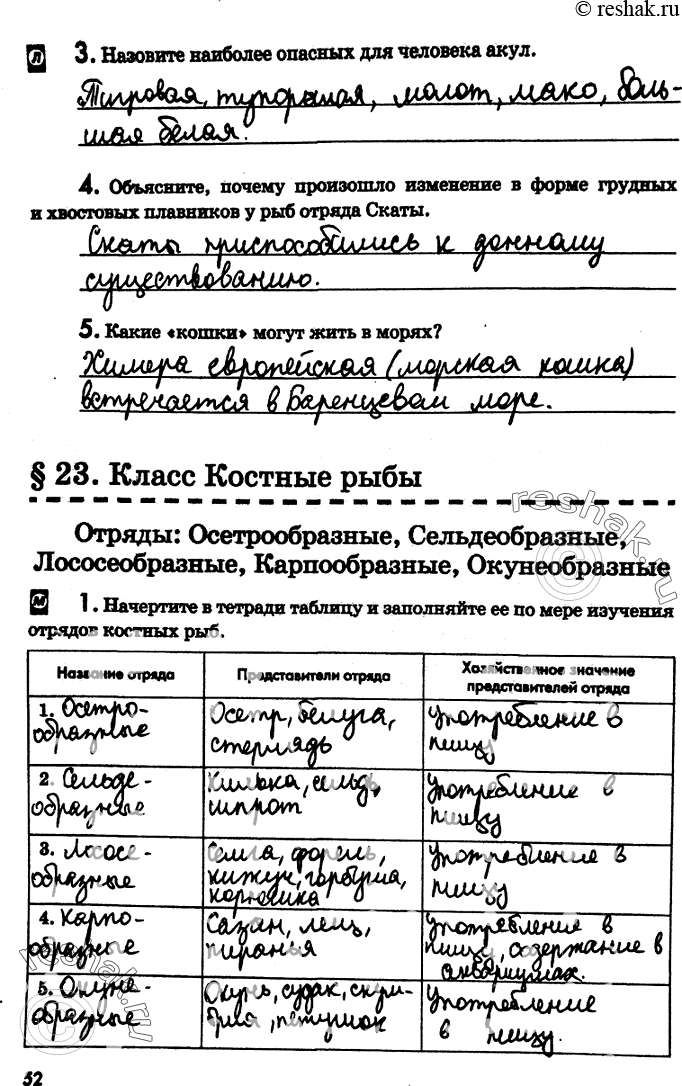 © reshak.ru
Л 3. Назовите наиболее опасных для человека акул.
Тигровая, тупорылая, молот, мако, боль-
шая белая.
4. Объясните, почему произошло изменение в форме грудных
и хвостовых плавников у рыб отряда Скаты.
Скаты приспособились к донному
существованию.
5. Какие «кошки» могут жить в морях?
Химера европейская (морская кошка)
встречается в Баренцевом море.
§ 23. Класс Костные рыбы
Отряды: Осетрообразные, Сельдеобразные,
Лососеобразные, Карпообразные, Окунеобразные
М 1. Начертите в тетради таблицу и заполняйте ее по мере изучения
отрядов костных рыб.
Название отряда
Представители отряда
Хозяйственное значение
представителей отряда
1. Осетро-
образные
Осетр, белуга,
стерлядь
Употребление в
пищу
2. Сельде-
образные
Килька, сельдь,
шпрот
Употребление в
пищу
3. Лососе-
образные
Семга, форель,
кижуч, горбуша,
корюшка
Употребление в
пищу
4. Карпо-
образные
Сазан, лещ,
пиранья
Употребление в
пищу, содержание в
аквариумах.
5. Окуне-
образные
Окунь, судак, скум-
брия, петушок
Употребление
в пищу.
52
reshak.ru
reshak.ru